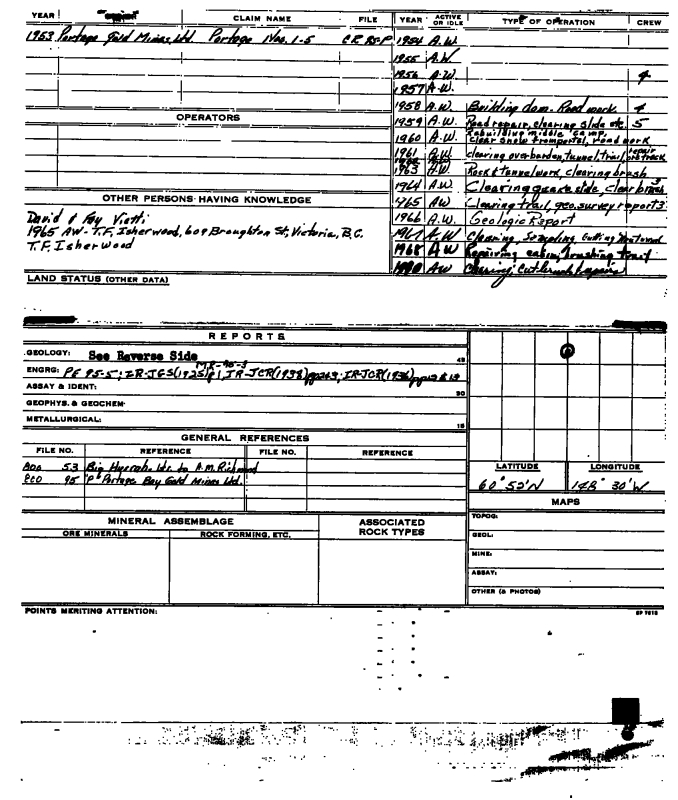 YEAR CLAIM NAME FILE YEAR ACTIVE OR IDLE TYPE OF OPERATION CREW
1953 Portage Gold Mines, Ltd. Portage Nos. 1-5 CR 95-P 1954 A.W.
1955 A.W
1956 A.W. 4
1957 A.W.
1958 A.W. Building dam. Road work 4
OPERATORS
1959 A.W. Road repair, clearing slide etc. 5
1960 A.W. Rebuilding middle camp,
clear snow from portal, road work
1961 A.W. clearing overburden, tunnel, trail, repair
1963 A.W. Rock & tunnel work, clearing brush
1964 A.W. Clearing quake slide, clear brush
OTHER PERSONS HAVING KNOWLEDGE
1965 AW Clearing trail, geo. survey report 3
David & Fay Viotti
1966 A.W. Geologic Report
1965 AW- T.F. Isherwood, 609 Broughton St, Victoria, B.C.
1967 A.W Cleaning, Sampling
T.F. Isherwood
1968 AW Repairing cabin, brushing trail
AW repairs
LAND STATUS (OTHER DATA)
REPORTS
GEOLOGY: See Reverse Side 45
MR-95-3
ENGRG: PE 95-5; IR-JGS(1925)p1, IR-JCR(1938) pp2&3; IR-JCR(1936)
30
ASSAY & IDENT:
GEOPHYS. & GEOCHEM.
METALLURGICAL: 15
GENERAL REFERENCES
FILE NO. REFERENCE FILE NO. REFERENCE
53 Big to A.M. Richmond
95 "P" Portage Bay Gold Mines Ltd.
LATITUDE LONGITUDE
60° 52'N 148° 30'W
MAPS
MINERAL ASSEMBLAGE ASSOCIATED ROCK TYPES
ORE MINERALS ROCK FORMING, ETC.
TOPOG:
GEOL:
MINE:
ASSAY:
OTHER (& PHOTOS)
POINTS MERITING ATTENTION: